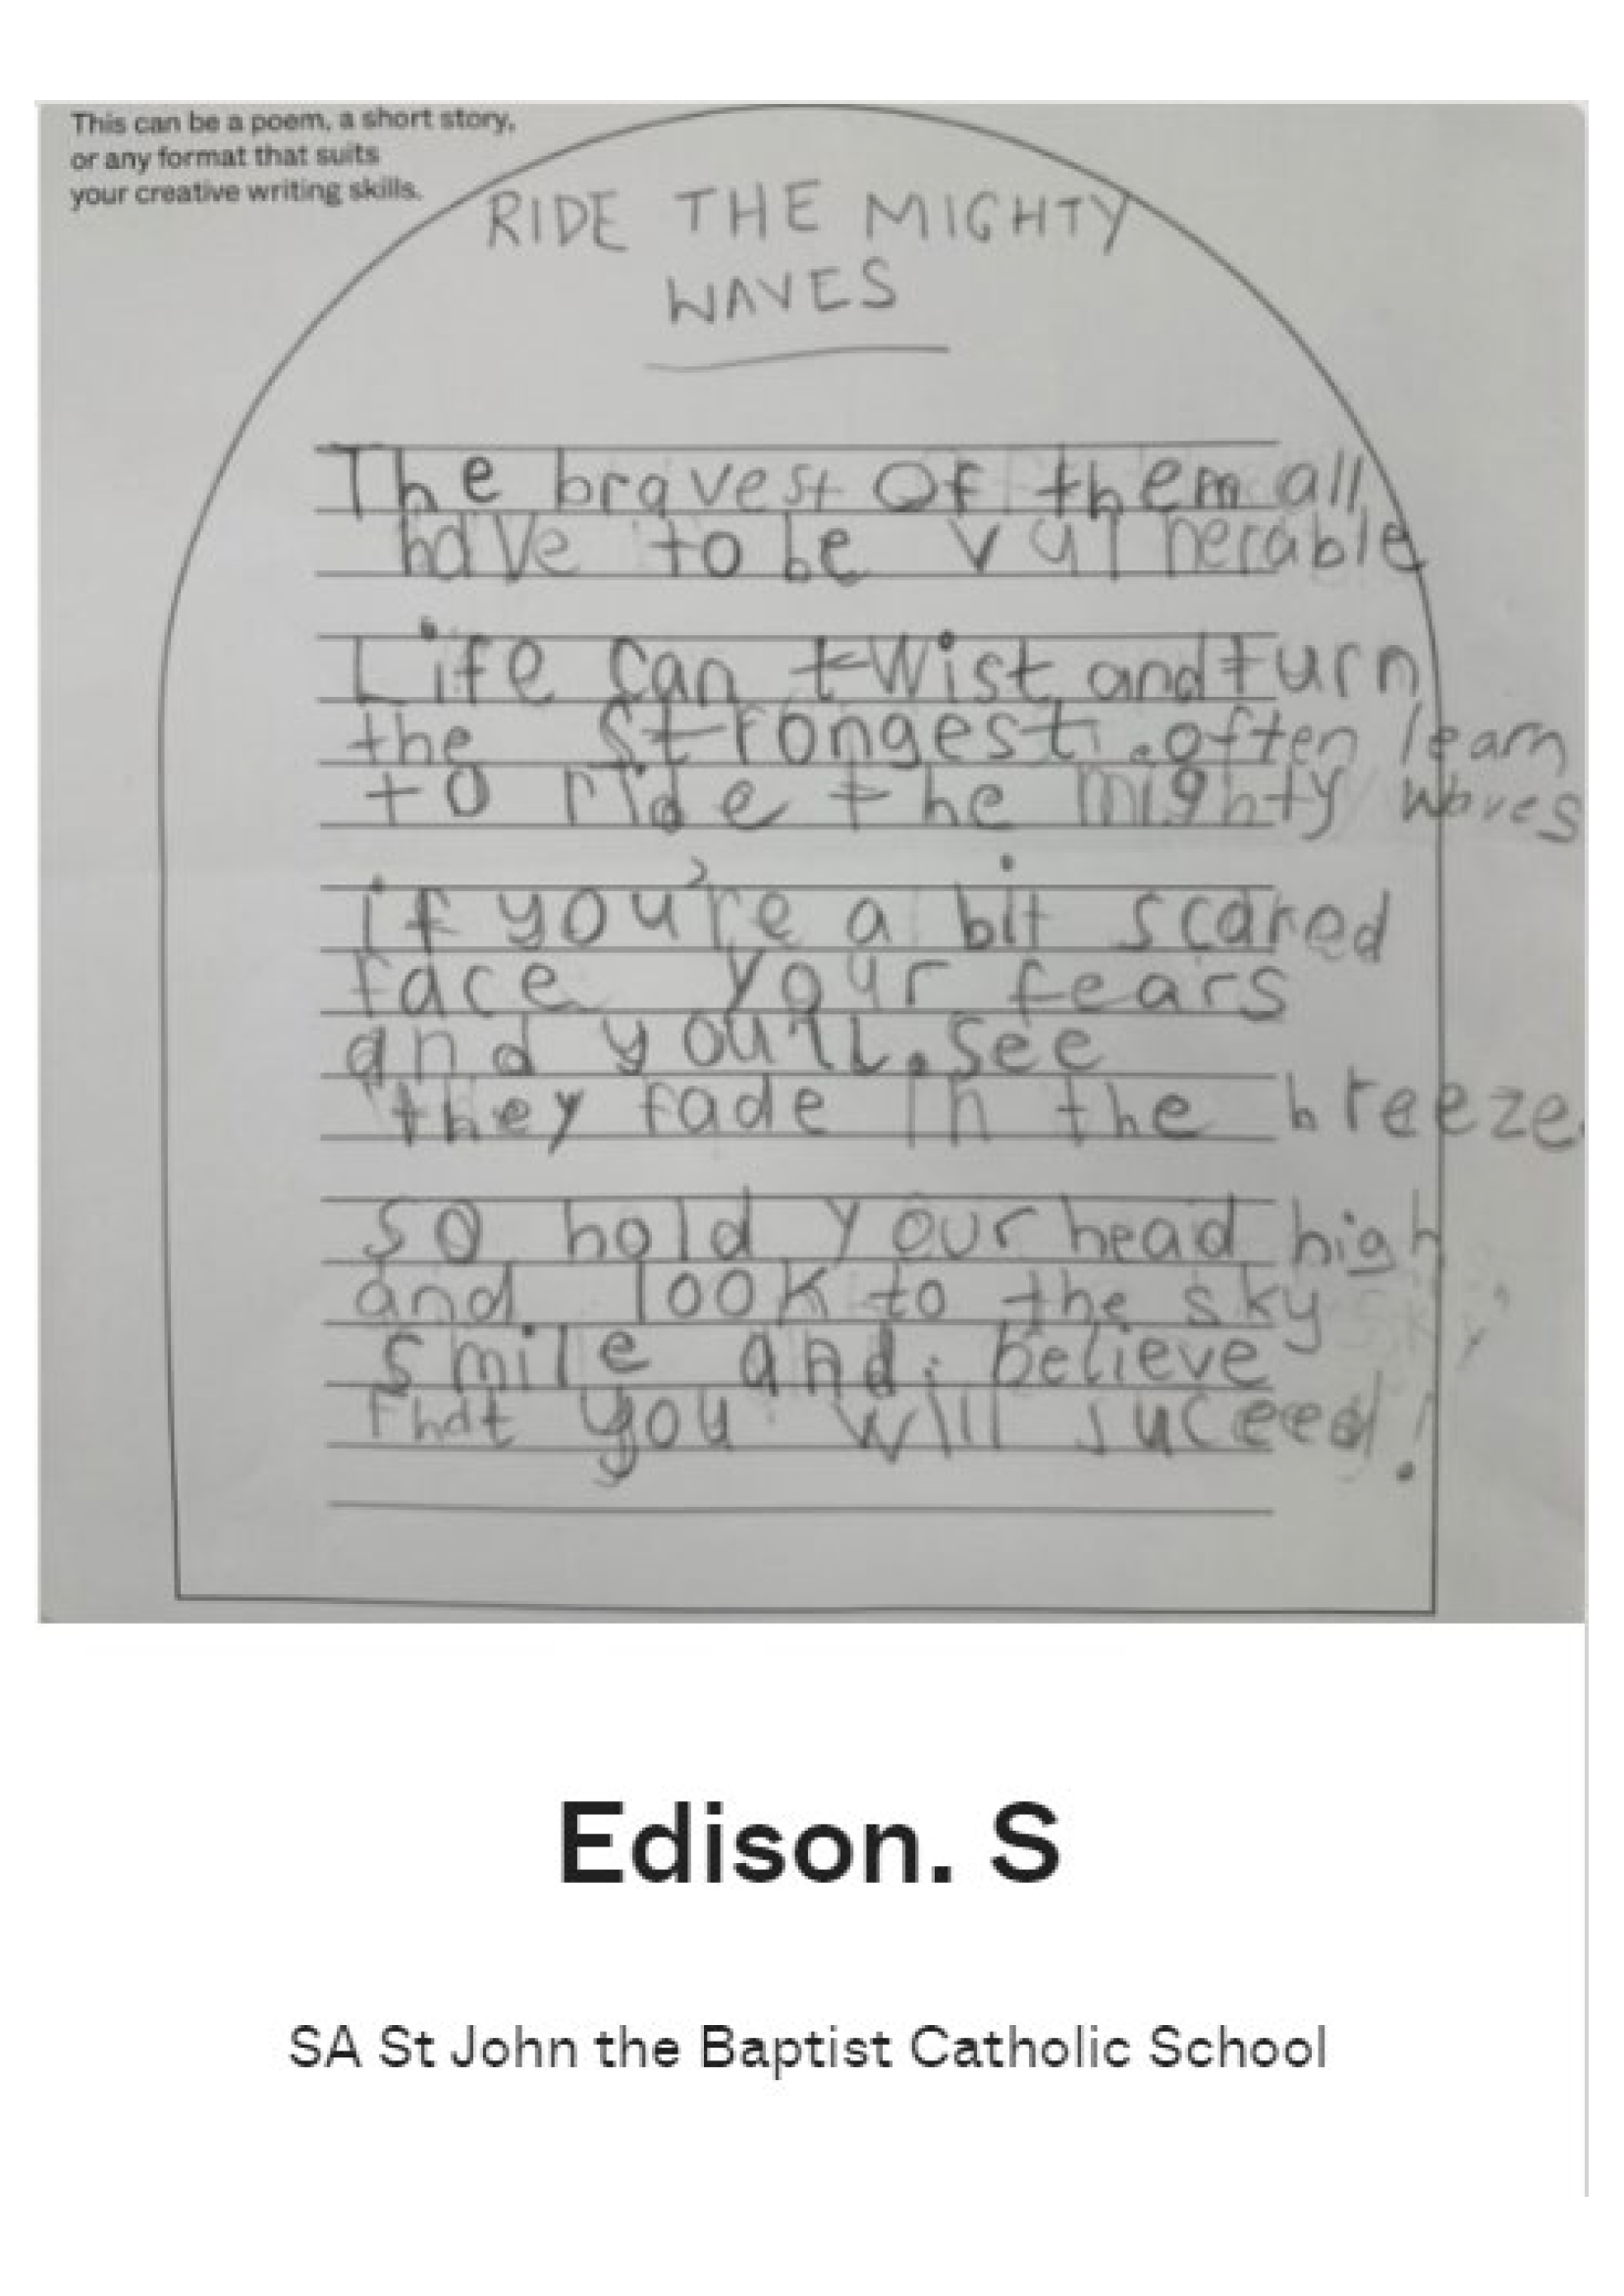 This can be a poem, a short story,
or any format that suits
your creative writing skills.
RIDE THE MIGHTY
WAVES
The bravest of them all
have to be vulnerable
Life can twist and turn
the strongest often learn
to ride the mighty waves
if you're a bit scared
face your fears
and you'll see
they fade in the breeze.
so hold your head high
and look to the sky
smile and believe
That you will suceed!
Edison. S
SA St John the Baptist Catholic School